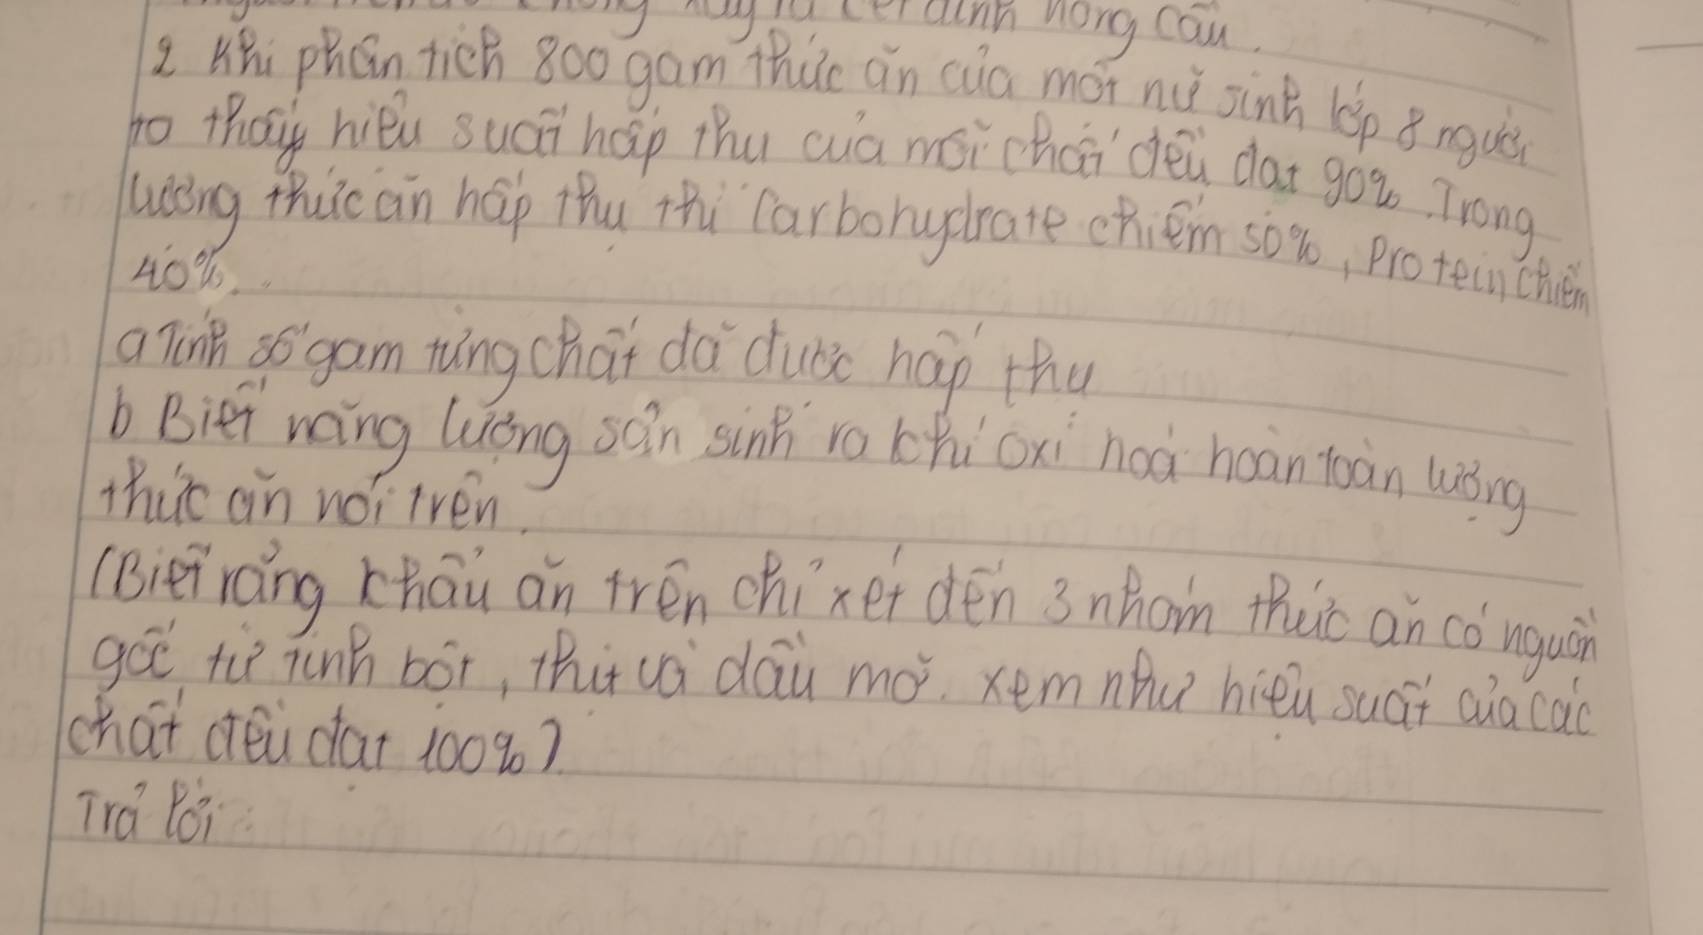 là cer dinh hồng cầu.
2 Khi phân tích 800 gam thức ăn của một nữ sinh lớp 8 người
ta thấy hiệu suất hấp thu của mỗi chất đều đạt 90%. Trong
lượng thức ăn hấp thu thì Carbohydrate chiếm 50%, Protein chiếm
40%.
a Tính số gam từng chất đã được hấp thu
b Biết năng lượng sản sinh ra khi oxi hoá hoàn toàn lượng
thức ăn nói trên.
(Biết rằng khẩu ăn trên chỉ xét đến 3 nhóm thức ăn có nguồn
gốc từ tinh bột, thịt và dầu mỡ. xem như hiệu suất của các
chất đều đạt 100%)
Trả lời: